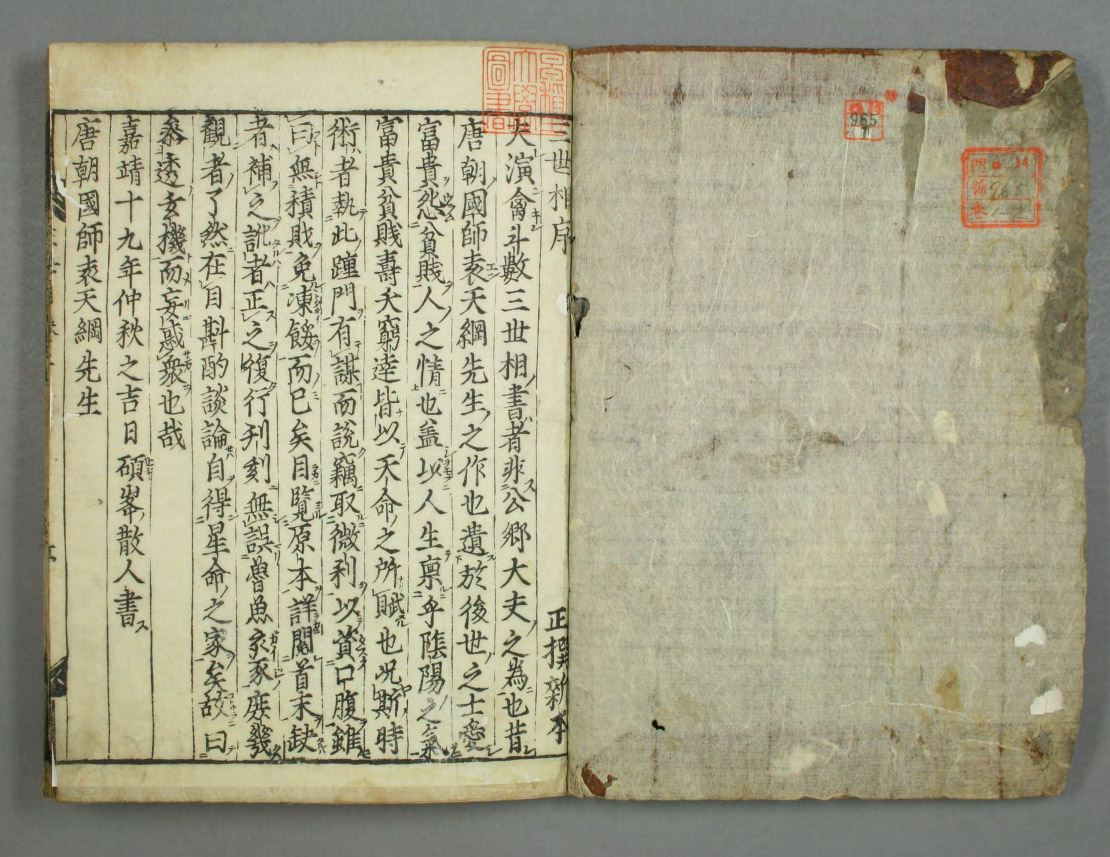 三世相序
正撰新本
夫演禽斗數三世相書者非公鄉大夫之為也昔
唐朝國師袁天綱先生之作也遺於後世之士愛
富貴怨貧賎人之情也盖以人生禀乎陰陽之氣
富貴貧賎壽夭窮逹皆以天命之所賦也况斯時
術者執此踵門有謀而說竊取微利以資口腹雖
曰無積賎免凍餒而已矣目覧原本詳閱首末缺
者補之訛者正之復行刋刻無誤魯魚亥豕庶發
觀者了然在目斟酌談論自得星命之家矣故曰
叅透玄機而妄惑衆也哉
嘉靖十九年仲秋之吉日碩峯散人書
唐朝國師袁天綱先生
圖書
965
965